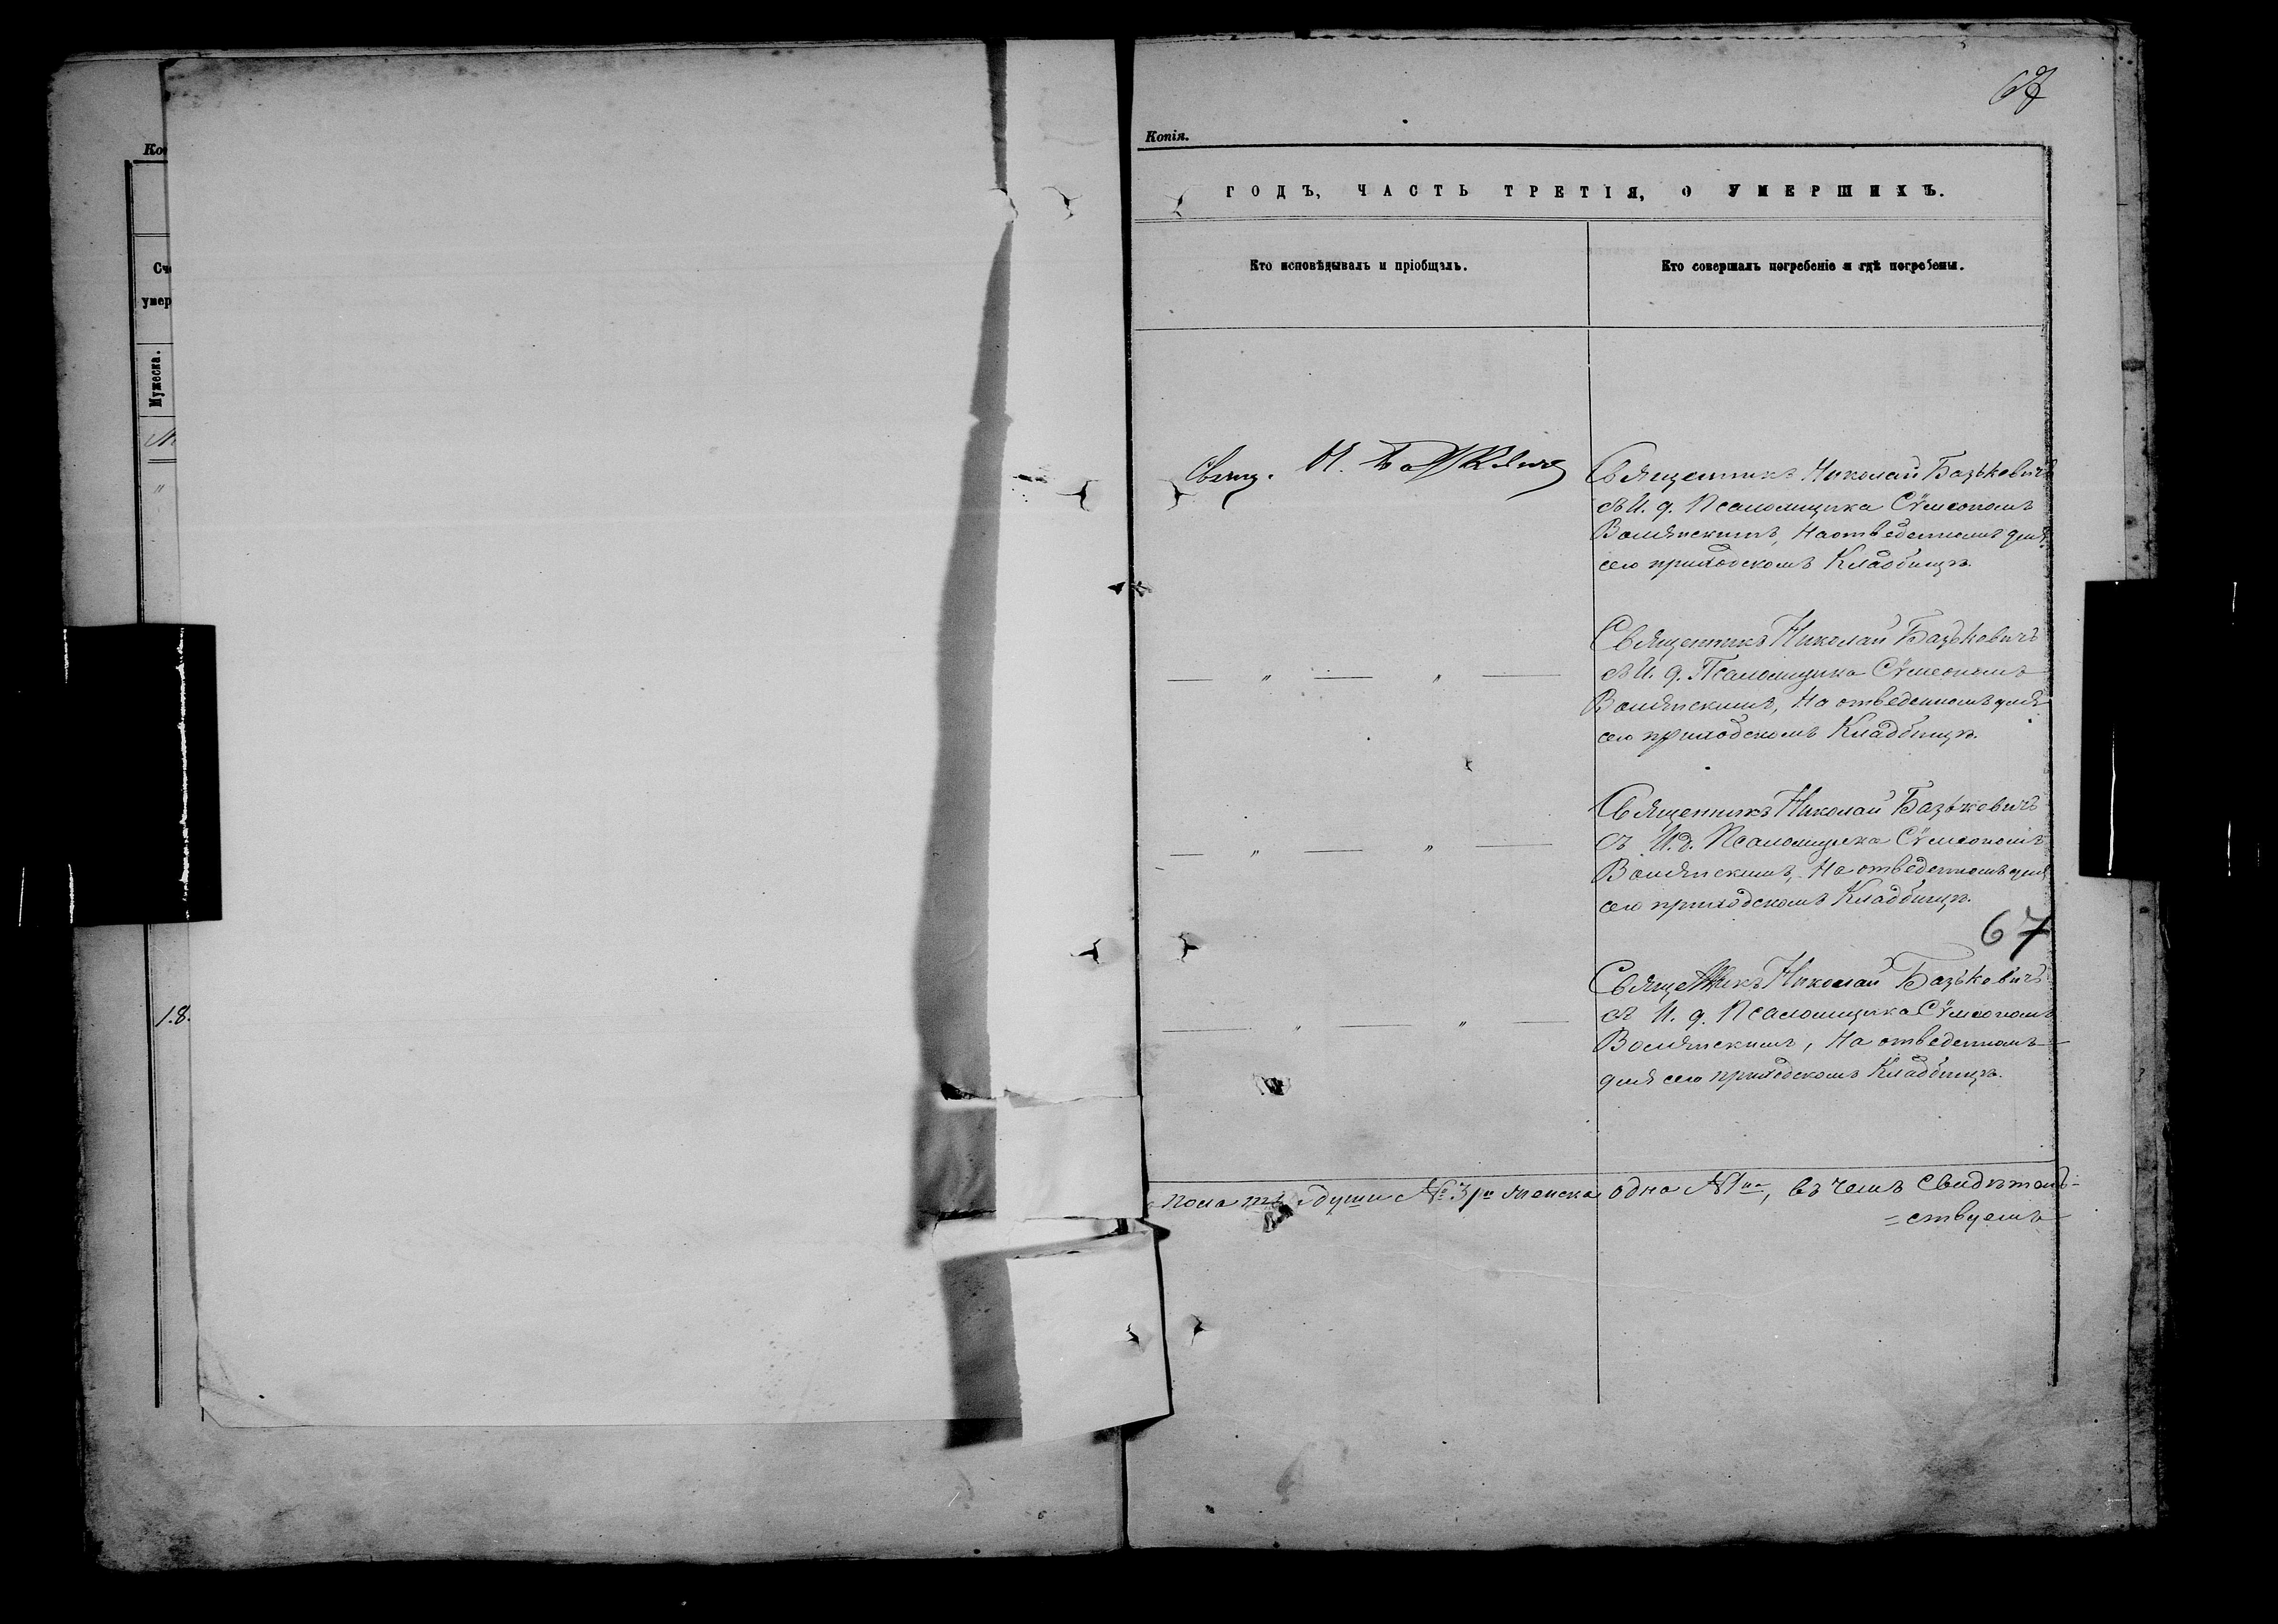 67
Копія.
Ко
ГОДЪ, ЧАСТЬ ТРЕТІЯ, О УМЕРШИХЪ.
Кто исповѣдывалъ и пріобщалъ.
Кто совершалъ погребеніе и гдѣ погребены.
Сч
умер
Мужеска.
М
"
Свящ. Н.
Священникъ Николай Базькевичъ
съ И. д. Псаломщика Сѵмеономъ
Волянскимъ, На отведенномъ для
сего приходскомъ Кладбищѣ.
Священникъ Николай Базьковичъ
— " — " —
съ И. д. Псаломщика Сѵмеономъ
Волянскимъ, На отведенномъ для
сего приходскомъ Кладбищѣ.
Священникъ Николай Базьковичъ
— " — " —
съ И. д. Псаломщика Сѵмеономъ
Волянскимъ, На отведенномъ для
сего приходскомъ Кладбищѣ.
67
Священникъ Николай Базьковичъ
1.8.
— " — " —
съ И. д. Псаломщика Сѵмеономъ
Волянскимъ, На отведенномъ
для сего приходскомъ Кладбищѣ.
пола три души № 3ри женска одна №1на, въ чемъ свидѣтель-
=ствуемъ